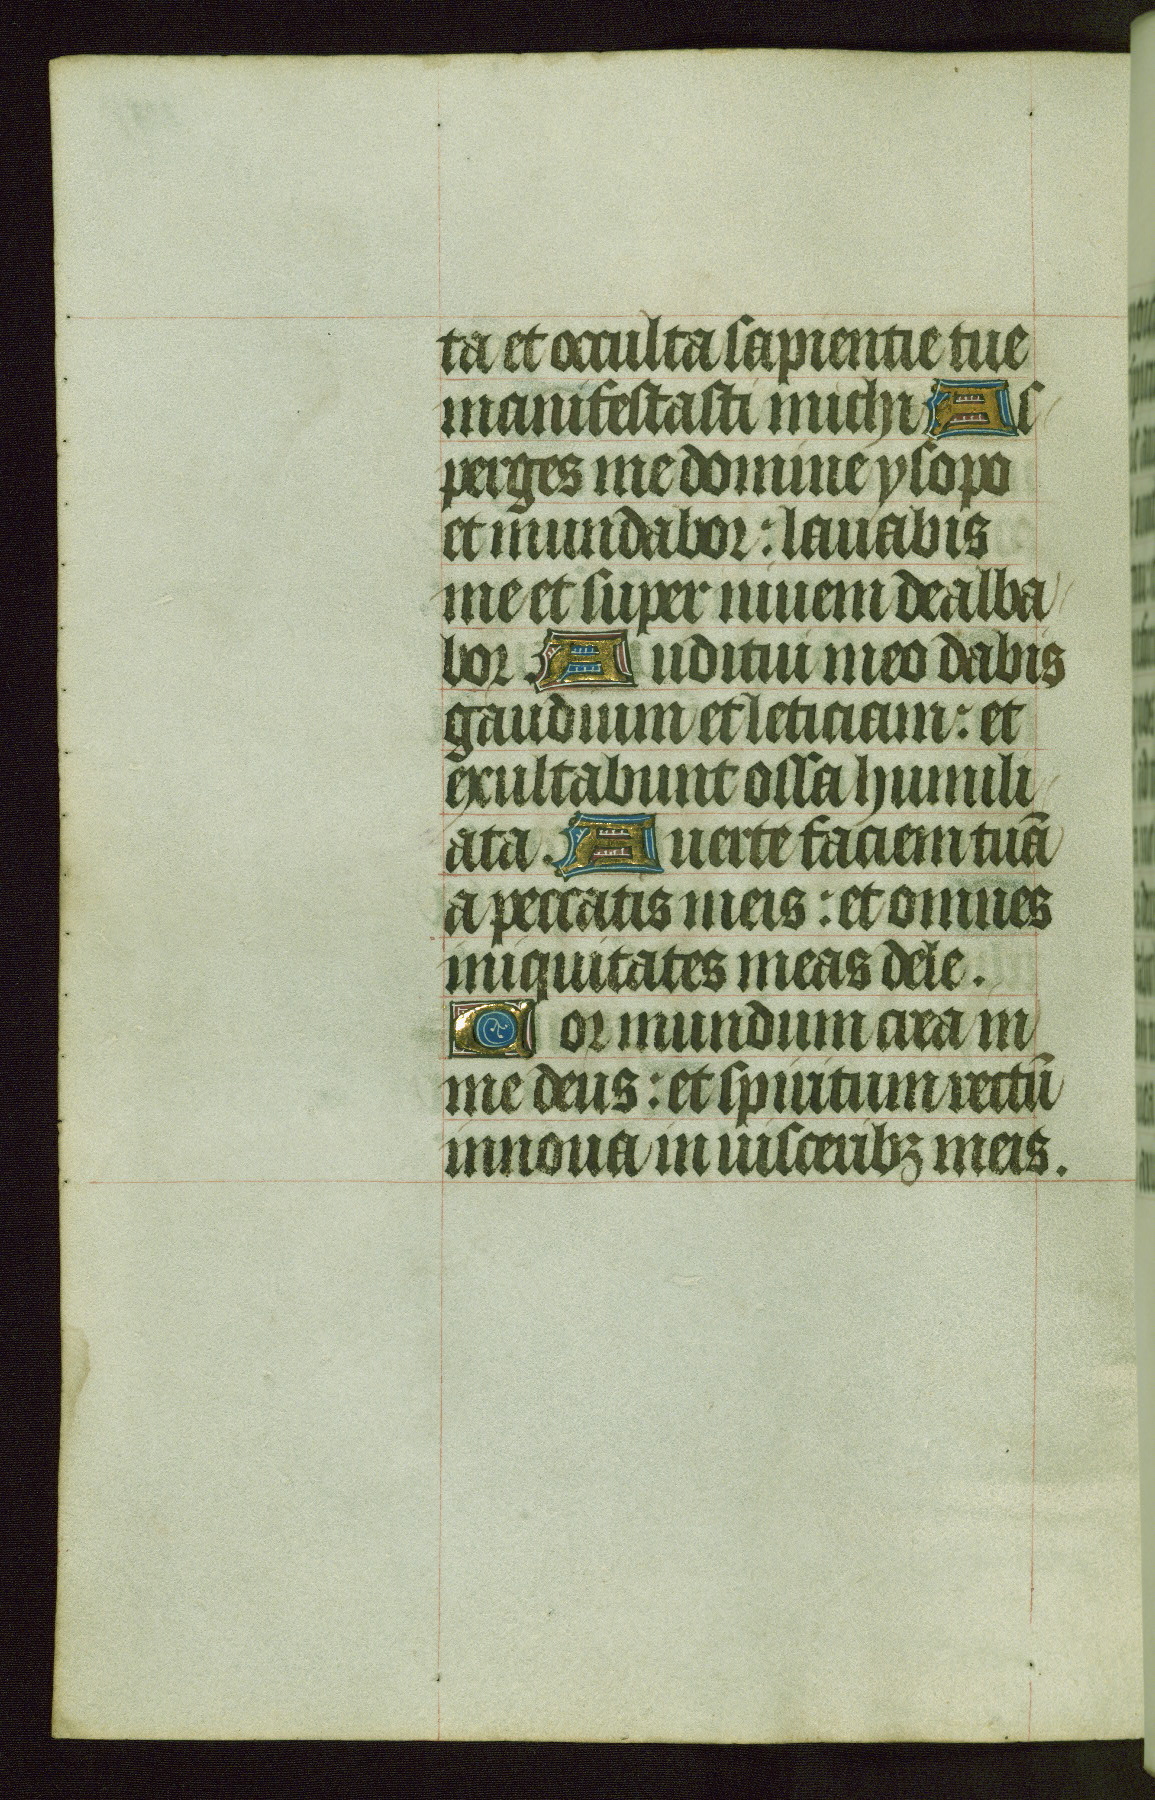 ta et occulta sapientie tue
manifestasti michi As
perges me domine ysopo
et mundabor: lauabis
me et super niuem dealba
bor. Auditui meo dabis
gaudium et leticiam: et
exultabunt ossa humili
ata. Auerte faciem tuã
a peccatis meis: et omnes
iniquitates meas dele.
Cor mundum crea in
me deus: et spiritum rectũ
innoua in uisceribꝫ meis.